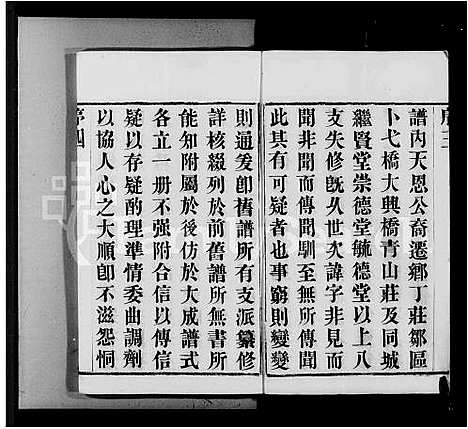 譜內天恩公裔遷鄉丁莊鄒區
卜弋橋大興橋青山莊及同城
繼賢堂崇德堂毓德堂以上八
支失修旣久世次諱字非見而
聞非聞而傳聞馴至無所傳聞
此其有可疑者也事窮則變變
則通爰卽舊譜所有支派纂修
詳核綴列於前舊譜所無書所
能知附屬於後仿於大成譜式
各立一册不強合信以傳信
疑以存疑酌理準情委曲調劑
以協人心之大順卽不滋怨恫
序四